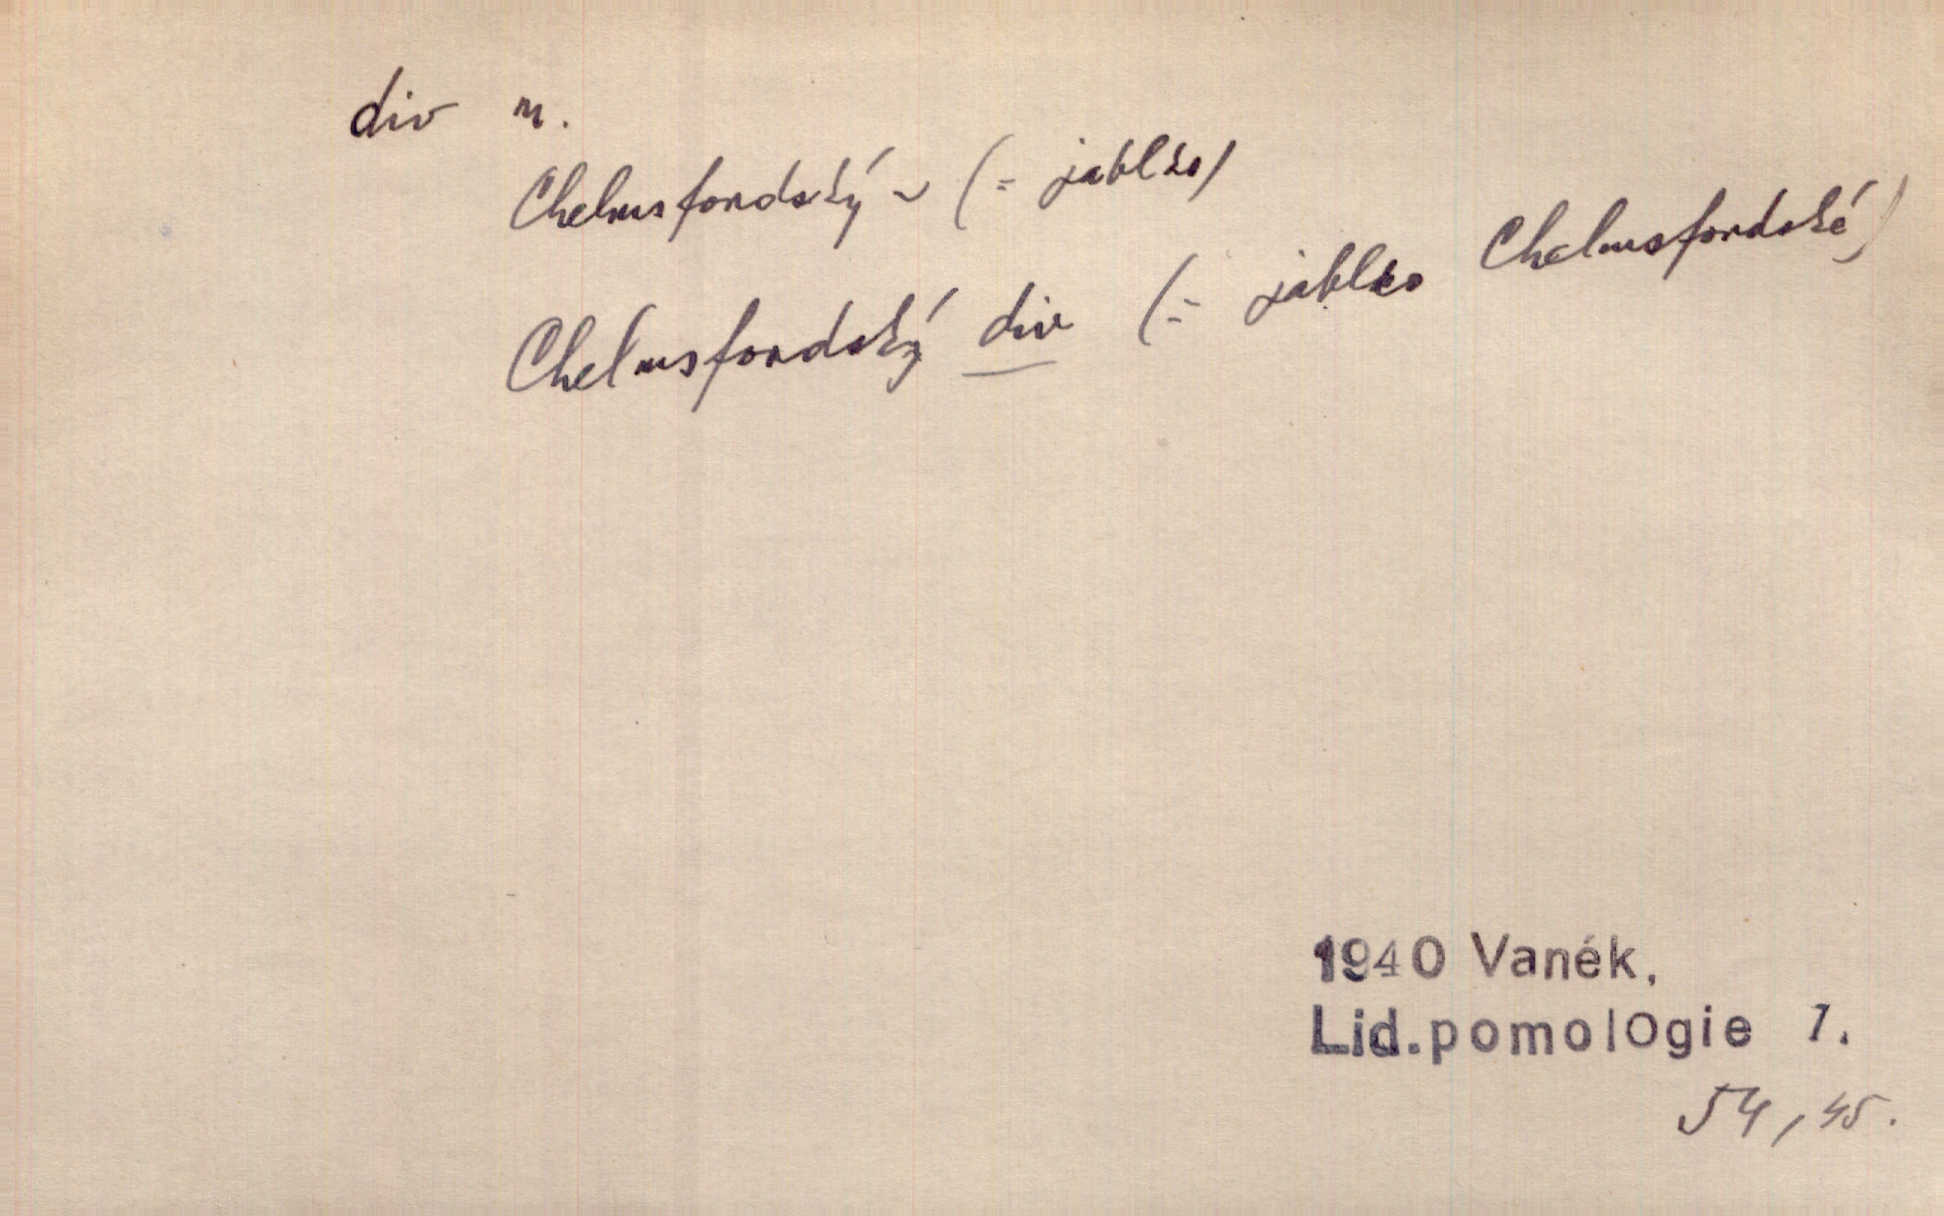 div m.
Chelmsfordský ~ (= jablko)
Chelmsfordský div (= jablko Chelmsfordské)
1940 Vaněk,
Lid.pomologie 1.
54, 45.